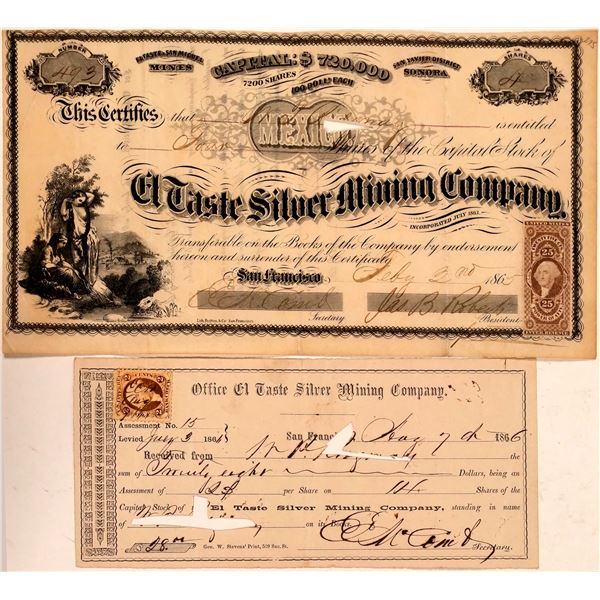 NUMBER
493
EL TASTE & SAN MIGUEL
MINES
CAPITAL: $720,000
7200 SHARES 100 DOLLS EACH
SAN XAVIER DISTRICT
SONORA
SHARES
4
This Certifies that is entitled
to Four Shares of the Capital Stock of
MEXICO
El Taste Silver Mining Company.
INCORPORATED JULY 1863.
Transferable on the Books of the Company by endorsement
hereon and surrender of this Certificate
San Francisco Feby 2nd 186
Secretary
Jas B. President
Lith. Britton & Co. San Francisco.
25
25
INTER. REVENUE
Office El Taste Silver Mining Company.
Assessment No. 15
Levied July 3 186 San Francisco, Aug 7th 1866
Received from
sum of Twenty eight Dollars, being an
Assessment of $2 per Share on 14 Shares of the
Capital Stock of El Taste Silver Mining Company, standing in name
of on its Books.
$28.00
Geo. W. Stevens' Print, 529 San. St.
Secretary.